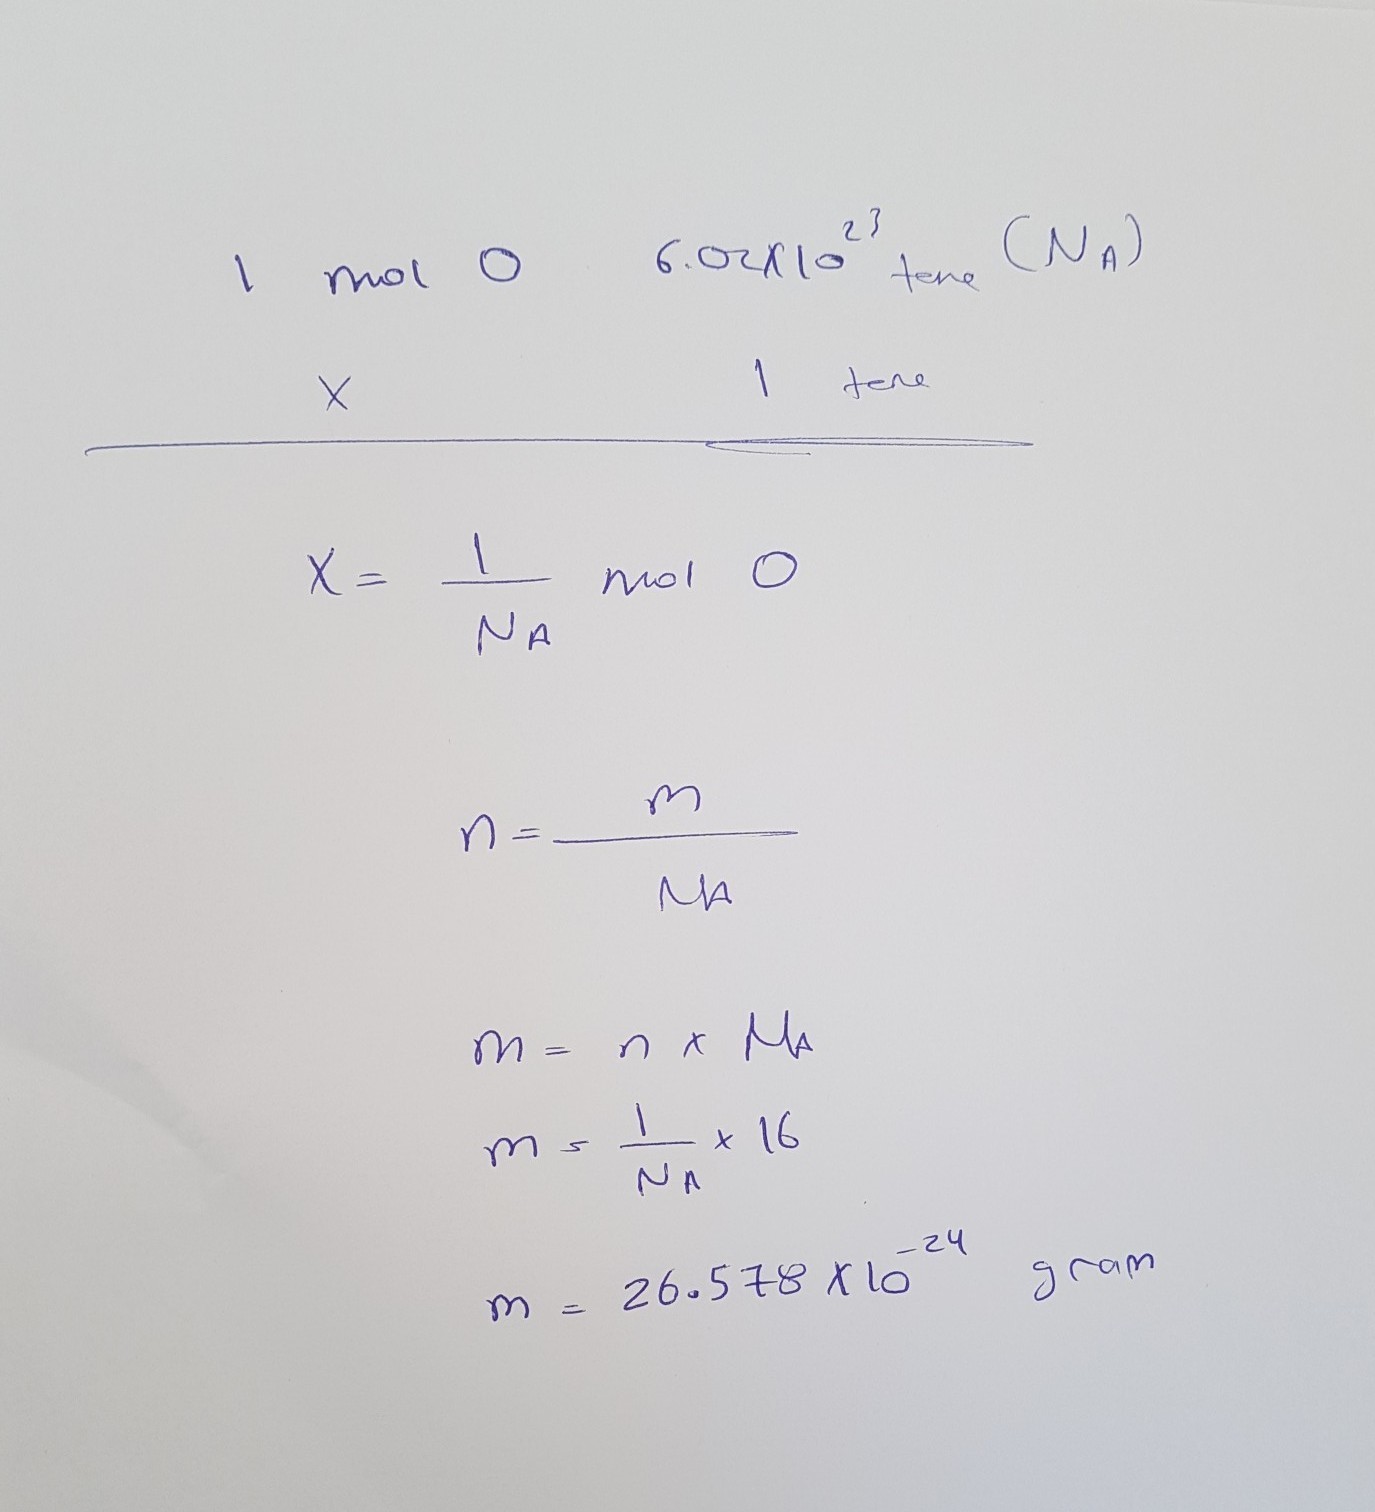 1 mol O 6.02x10²³ tane (NA)
X 1 tane
X = 1/NA mol O
n = m/MA
m = n x MA
m = 1/NA x 16
m = 26.578 x 10⁻²⁴ gram